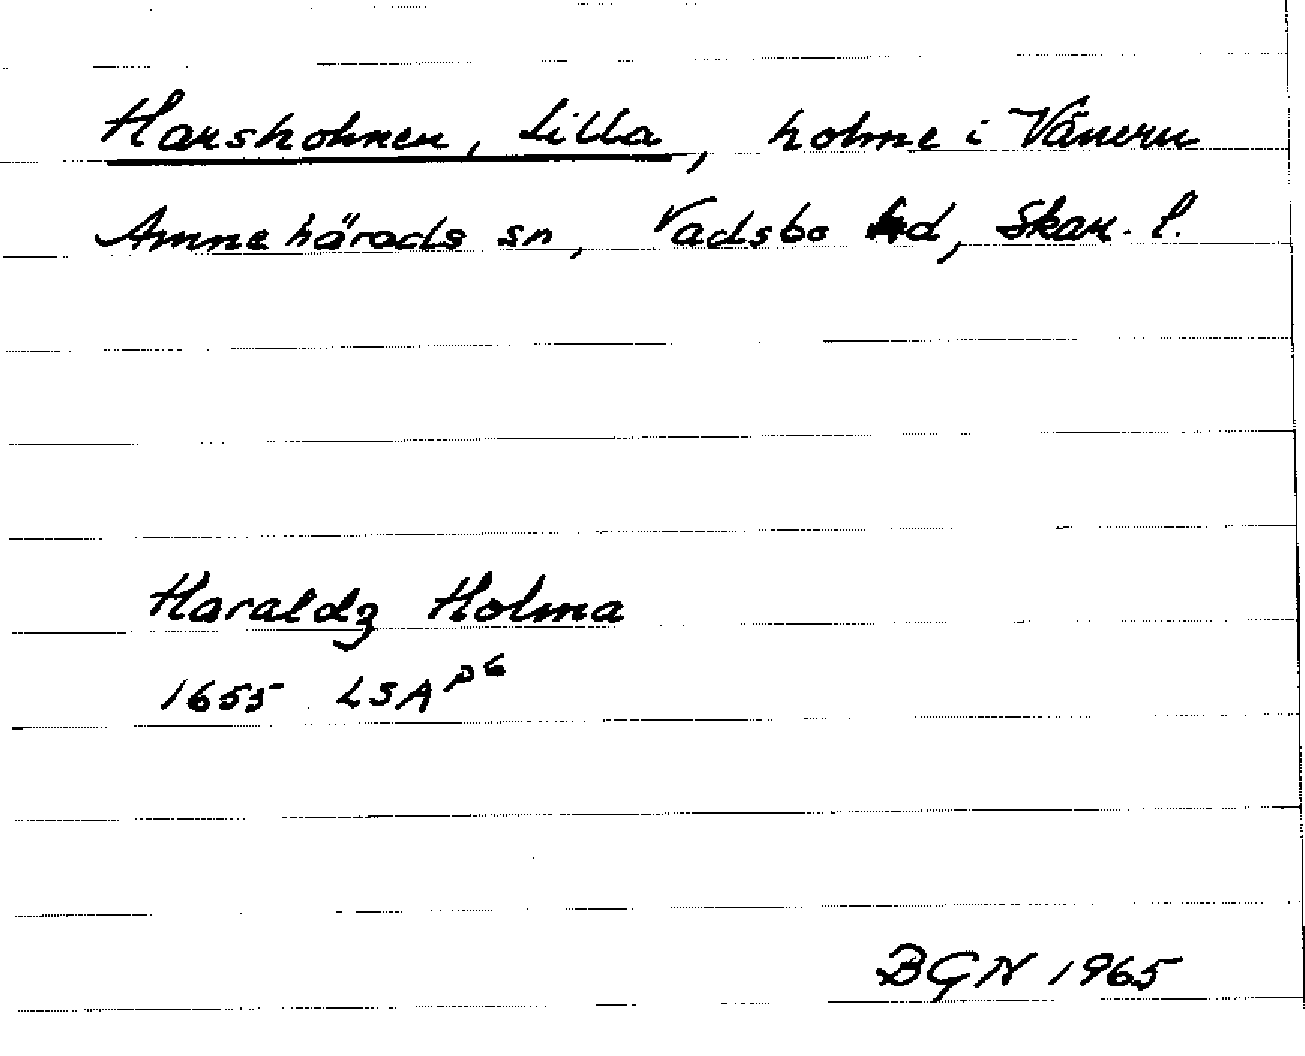 Harsholmen, Lilla, holme i Vänern
Amnehärads sn, Vadsbo hd, Skar. l.
Haraldz Holma
1655 LSA P6
BGN 1965